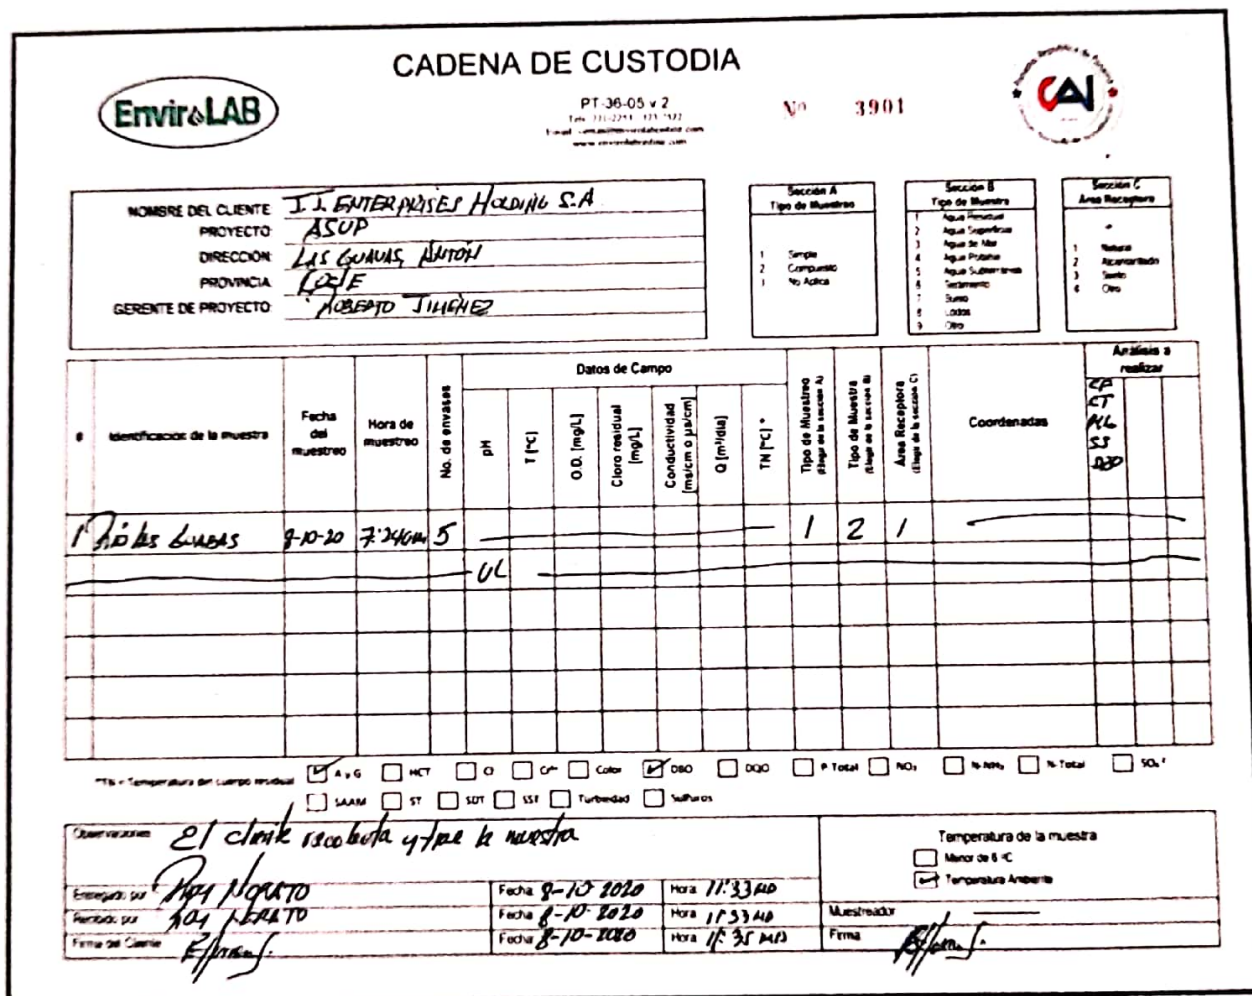 CADENA DE CUSTODIA
EnviroLAB
PT-36-05 v 2
Nº 3901
CAI
NOMBRE DEL CLIENTE J.J. ENTERPRISES HOLDING S.A
PROYECTO: ASUP
DIRECCIÓN: LAS GUAVAS, ANTÓN
PROVINCIA COCLE
GERENTE DE PROYECTO: ROBERTO JIMÉNEZ
Sección A
Tipo de Muestreo
1 Simple
2 Compuesto
3 No Aplica
Sección B
Tipo de Muestra
1 Agua Residual
2 Agua Superficial
3 Agua de Mar
4 Agua Potable
5 Agua Subterránea
6 Sedimento
7 Suelo
8 Lodos
9 Otro
Sección C
Área Receptora
1 Natural
2 Alcantarillado
3 Suelo
4 Otro
#
Identificación de la muestra
Fecha del muestreo
Hora de muestreo
No. de envases
Datos de Campo
pH
T [°C]
O.D. [mg/L]
Cloro residual [mg/L]
Conductividad [ms/cm o µs/cm]
Q [m³/día]
TN [°C] *
Tipo de Muestreo (Elegir de la sección A)
Tipo de Muestra (Elegir de la sección B)
Área Receptora (Elegir de la sección C)
Coordenadas
Análisis a realizar
CF
CT
SS
1 Río las Guabas 8-10-20 7:24am 5 1 2 1
UL
*TN = Temperatura del cuerpo residual
A y G HCT Cl Cr⁶⁺ Color DBO DQO P Total NO₃ N-NH₃ N-Total SO₄⁻²
SAAM ST SDT SST Turbiedad Sulfuros
Observaciones El cliente recolecta y trae la muestra
Entregado por Roy NORATO Fecha 8-10-2020 Hora 11:33 MD
Recibido por Roy NORATO Fecha 8-10-2020 Hora 11:33 MD
Firma del Cliente Fecha 8-10-2020 Hora 11:35 MD
Temperatura de la muestra
Menor de 6 °C
Temperatura Ambiente
Muestreador
Firma